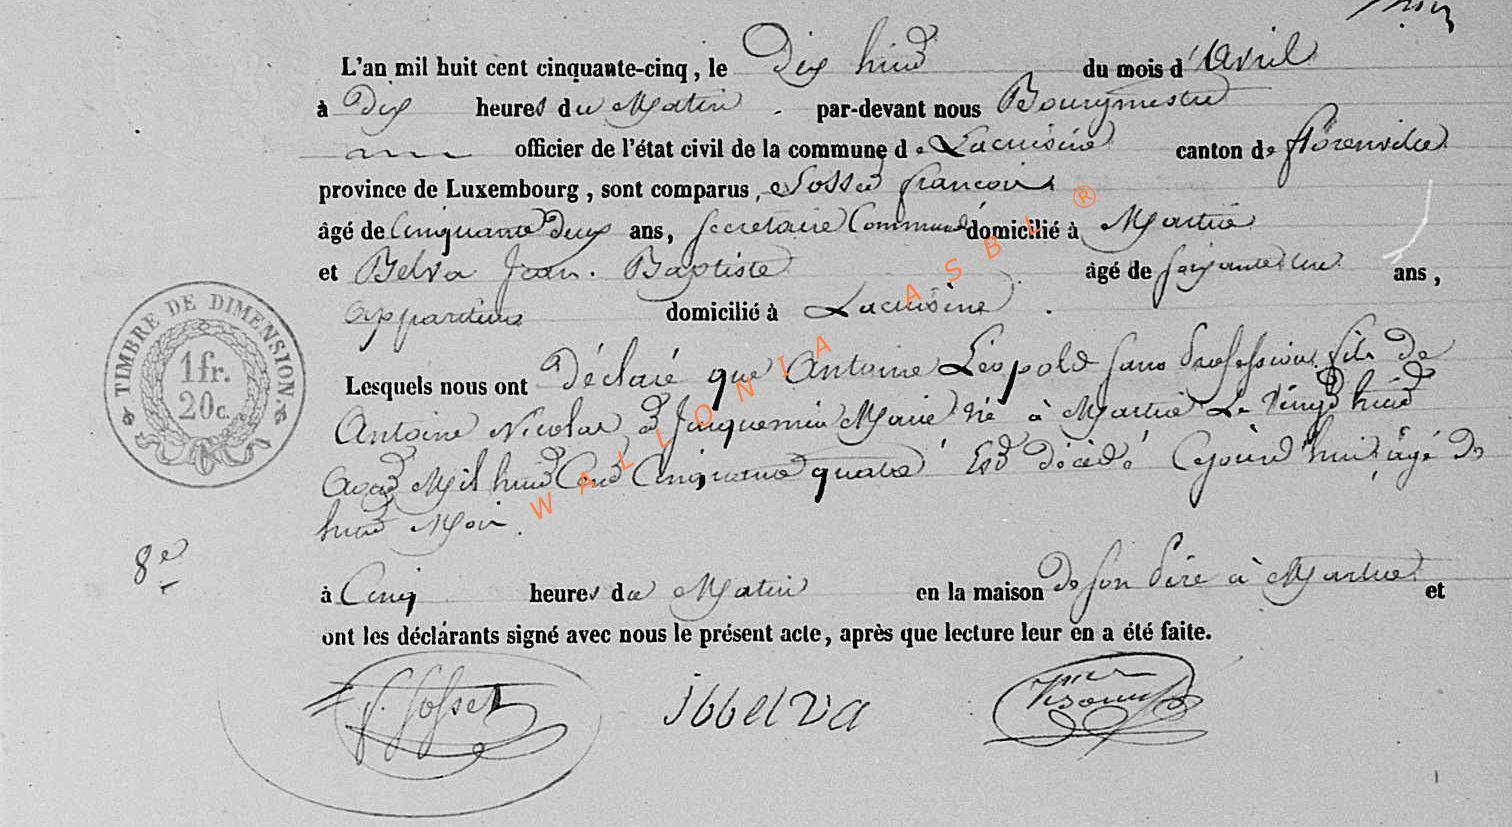 L'an mil huit cent cinquante-cinq, le Dix huit du mois d'Avril
à Dix heures du Matin par-devant nous Bourgmestre
officier de l'état civil de la commune de Lacuisine canton de florenville
province de Luxembourg, sont comparus, Sosset françois
âgé de Cinquante deux ans, secretaire Communal domicilié à Martué
et Belva Jean Baptiste âgé de soixante une ans,
appariteur domicilié à Lacuisine
Lesquels nous ont Déclaré que Antoine Léopold sans profession, fils de
Antoine Nicolas et Jacquemin Marie né à Martué Le Vingt huit
août Mil huit Cent Cinquante quatre Est décédé Cejourd'huit, agé de
huit Mois.
à Cinq heures du Matin en la maison de son père à Martué et
ont les déclarants signé avec nous le présent acte, après que lecture leur en a été faite.
TIMBRE DE DIMENSION.
1fr.
20c.
8e
f. Sosset
jbbelva
WALLONIA ASBL ®